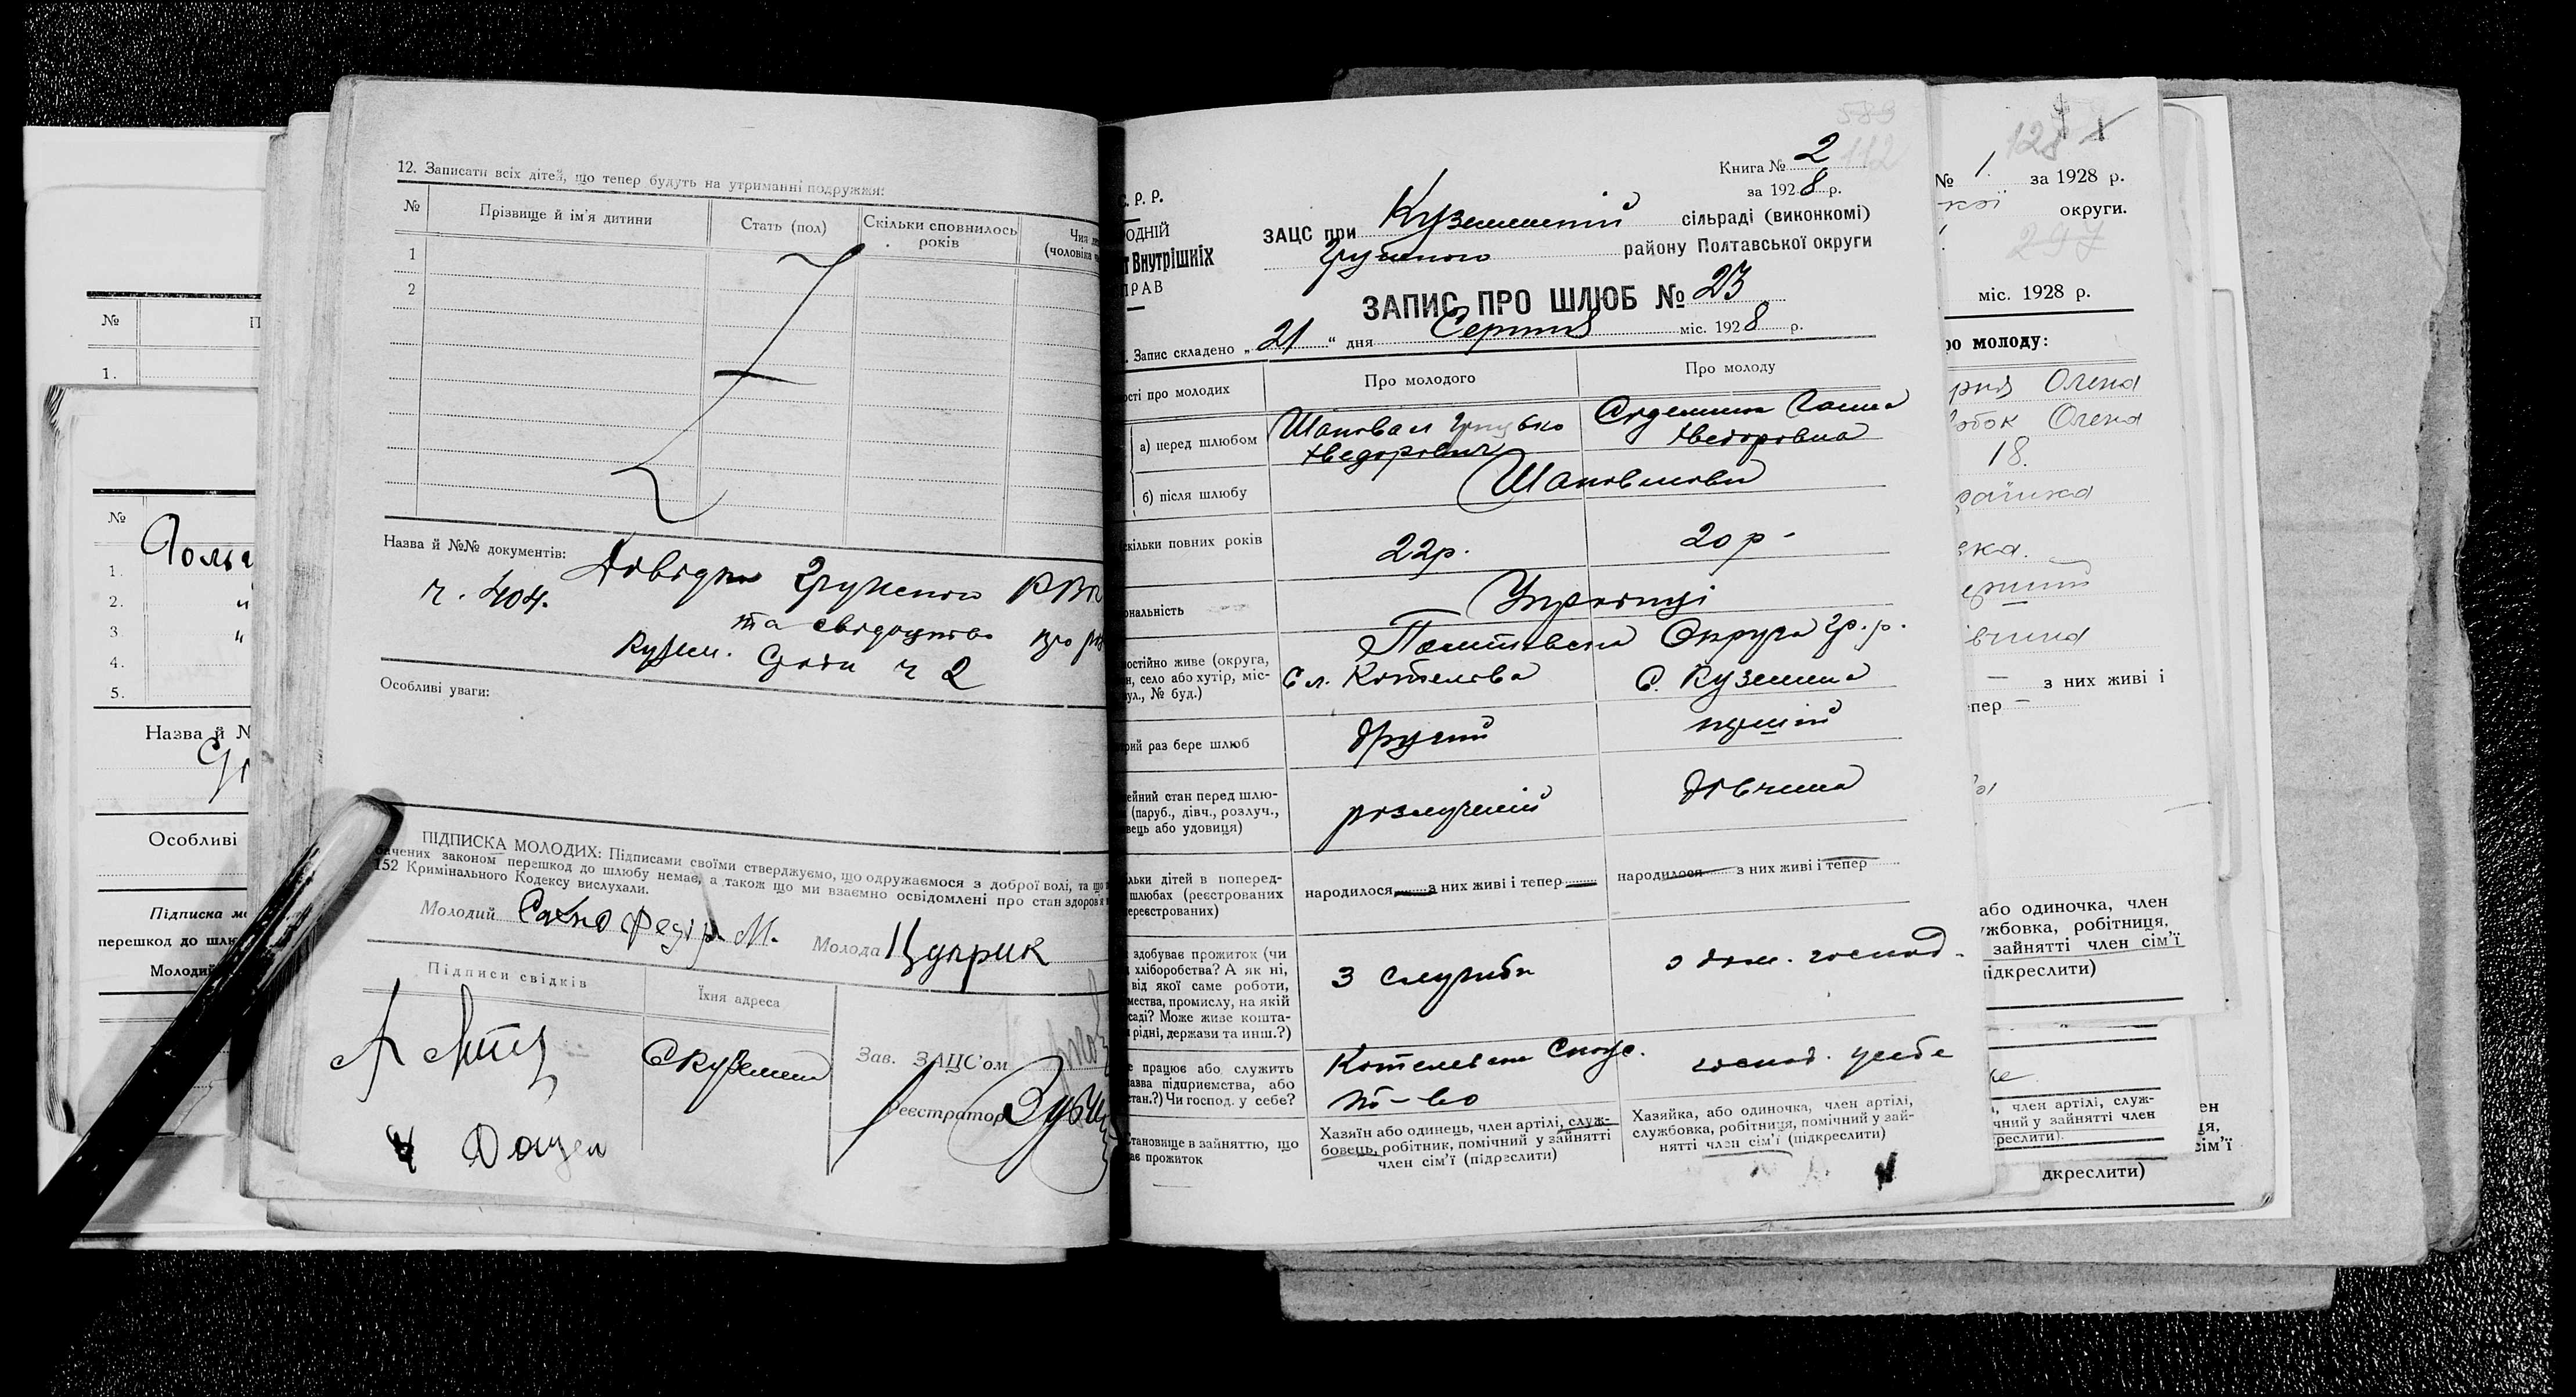 12. Записати всіх дітей, що тепер будуть на утриманні подружжя:
№
Прізвище й ім'я дитини
Стать (пол)
Скільки сповнилось років
1
2
Назва й №№ документів:
Довідка Грунського РВК
ч. 404.
та свідоцтво про
Кузем. Сради ч 2
Особливі уваги:
ПІДПИСКА МОЛОДИХ: Підписами своїми стверджуємо, що одружаємося з доброї волі, та що
бачених законом перешкод до шлюбу немає, а також що ми взаємно освідомлені про стан здоров'я
152 Кримінального Кодексу вислухали.
Молодий Сахно Федір М. Молода Цуприк
Підписи свідків
Їхня адреса
Зав. ЗАЦС'ом
Реєстратор
№
1.
№
1.
2. "
3 "
4.
5.
Назва й №
Особливі
Підписка мо
перешкод до шлю
Молодий
Книга № 2
за 1928 р.
С. Р. Р.
ОДНІЙ
т Внутрішніх
ПРАВ
ЗАЦС при Куземенській сільраді (виконкомі)
Грунського району Полтавської округи
ЗАПИС ПРО ШЛЮБ № 23
Запис складено „21“ дня Серпня міс. 1928 р.
ості про молодих
Про молодого
Про молоду
а) перед шлюбом
Шаповал Грицько
Хведорович
Гашка
Хведоровна
б) після шлюбу
Шаповалови
скільки повних років
22р.
20 р -
ональність
Українці
постійно живе (округа,
н, село або хутір, міс-
вул., № буд.)
Полтавська Округа Гр. р.
Сл. Котельва
С. Куземина
рий раз бере шлюб
другий
перший
ейний стан перед шлю-
(паруб., дівч., розлуч.,
вець або удовиця)
розлучений
дівчина
льки дітей в поперед-
шлюбах (реєстрованих
ереєстрованих)
народилося з них живі і тепер
народилося з них живі і тепер
здобуває прожиток (чи
хліборобства? А як ні,
від якої саме роботи,
мества, промислу, на якій
саді? Може живе кошта-
рідні, держави та инш.?)
З служби
з дом. господ.
е працює або служить
азва підприємства, або
стан.?) Чи господ. у себе?
Котелевське Спож.
т-во
господ. у себе
Становище в зайняттю, що
ає прожиток
Хазяїн або одинець, член артілі, служ-
бовець, робітник, помічний у зайнятті
член сім'ї (підреслити)
Хазяйка, або одиночка, член артілі,
службовка, робітниця, помічний у зай-
нятті член сім'ї (підкреслити)
№ 1. за 1928 р.
округи.
міс. 1928 р.
ро молоду:
Олена
Олена
18.
з них живі і
пер
або одиночка, член
жбовка, робітниця,
зайнятті член сім'ї
ідкреслити)
член артілі, служ-
чний у зайнятті член
реслити)
ен
ця,
сім'ї
дкреслити)